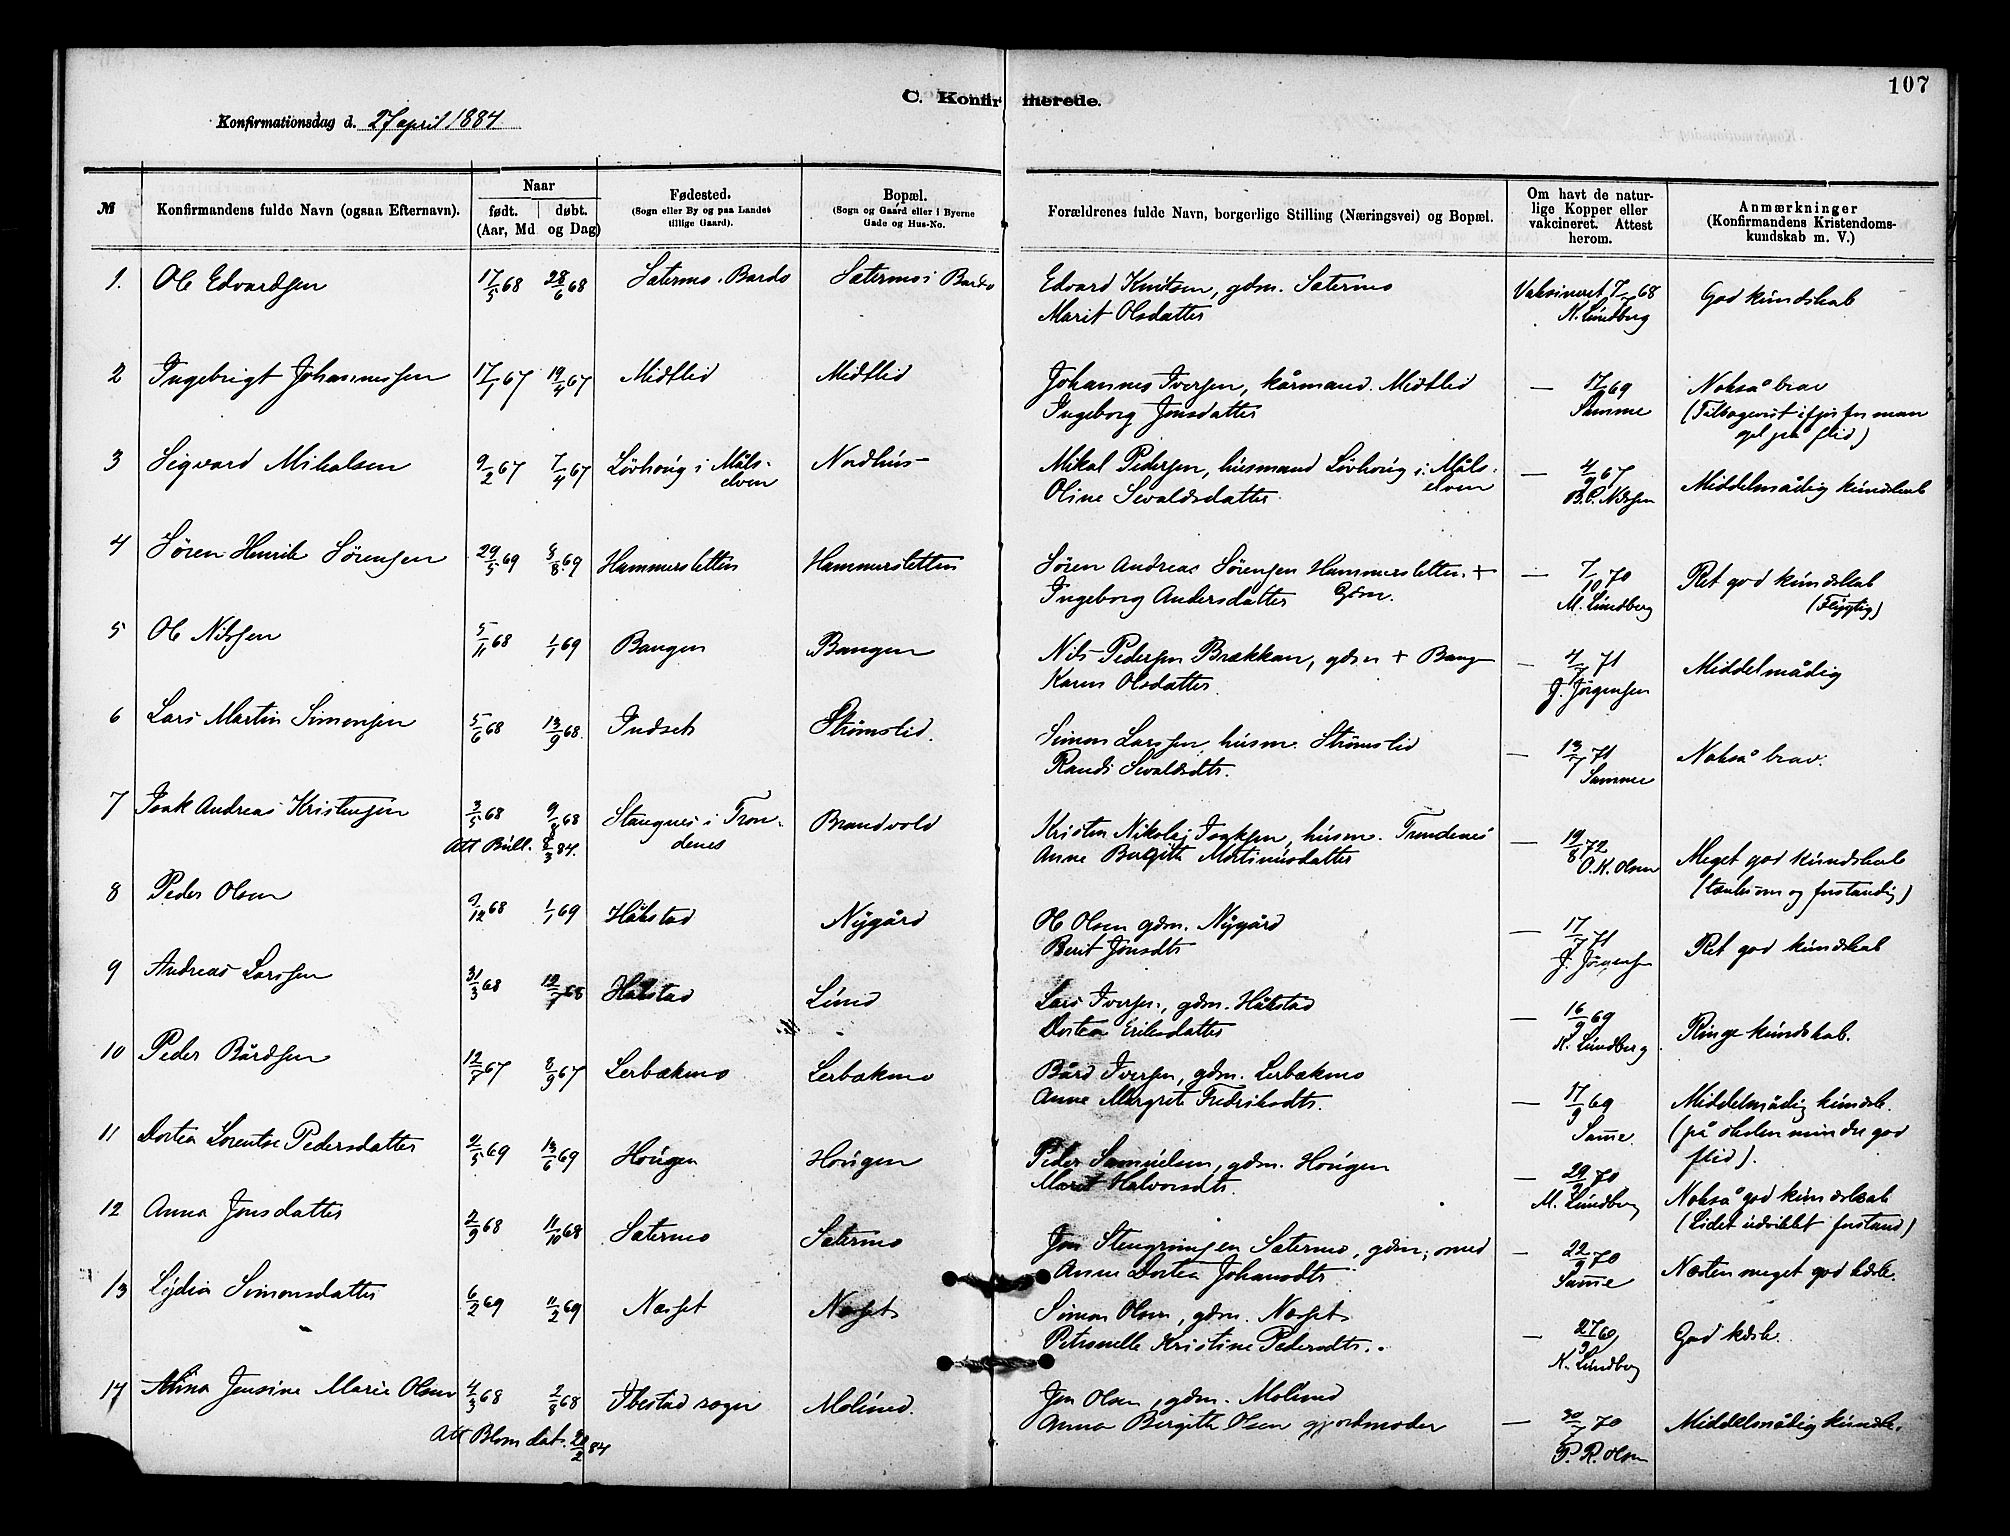 107
C. Konfirmerede.
Konfirmationsdag d. 27 april 1884.
№ Konfirmandens fulde Navn (ogsaa Efternavn). Naar født. (Aar, Md døbt. og Dag) Fødested. (Sogn eller By og paa Landet tillige Gaard). Bopæl. (Sogn og Gaard eller i Byerne Gade og Hus-No. Forældrenes fulde Navn, borgerlige Stilling (Næringsvei) og Bopæl. Om havt de naturlige Kopper eller vakcineret. Attest herom. Anmærkninger (Konfirmandens Kristendomskundskab m. V.)
1. Ole Edvardsen 17/5 68 28/6 68 Sætermo i Bardo Sætermo i Bardo Edvard Knutsen, gdm. Sætermo Vaksineret 7/7 68 God kundskab
Marit Olsdatter K. Lundberg
2 Ingebrigt Johannessen 17/1 67 19/4 67 Midtlid Midtlid Johannes Iversen, kårmand. Midtlid — 17/9 69 Nokså brav
Ingeborg Jonsdatter Samme (Tilbagevist ifjor for man
gel på flid)
3 Sigvard Mikalsen 9/2 67 7/4 67 Løvhoug i Måls- Nordhus Mikal Pedersen, husmand Løvhoug i Måls- — 4/9 67 Middelmådig kundskab
elven Oline Sevaldsdatter elven
4 Søren Henrik Sørensen 29/5 69 8/8 69 Hammersletten Hammersletten Søren Andreas Sørensen Hammersletten + — 7/10 70 Ret god kundskab
Ingeborg Andersdatter Gdm. M. Lundberg (Flygtig)
5 Ole Nilssen 5/11 68 1/1 69 Bangen Bangen Nils Pedersen Brækkan, gdm + Bang — 4/7 71 Middelmådig
Karen Olsdatter J. Jørgensen
6 Lars Martin Simonsen 5/6 68 13/9 68. Indset Strømslid. Simon Larssen, husm. Strømslid — 13/7 71 Nokså brav.
Randi Sevaldsdtr. Samme
7 Isak Andreas Kristensen 3/5 68 9/8 68 Stangnes i Tron- Brandvold Kristen Nikolej Isaksen, husm. Trondenes — 19/8 72 Meget god kundskab
Att Bull. 8/3 84. denes Anne Bergitte Mortinusdatter O. K. Olsen (tænksom og forstandig)
8 Peder Olsen 9/12 68 1/1 69 Håkstad Nygård Ole Olsen gdm. Nygård — 17/7 71 Ret god kundskab
Berit Jonsdtr J. Jørgensen
9 Andreas Larssen 31/3 68 12/7 68 Håkstad Lund Lars Iversen, gdm. Håkstad — 16/9 69 Ringe kundskab.
Dortea Eriksdatter K. Lundberg
10 Peder Bårdsen 12/7 67 8/9 67 Lerbækmo Lerbakmo Bård Iversen, gdm. Lerbækmo — 17/9 69 Middelmådig kundsk.
Anne Margrete Fredriksdtr. Samme. (på skolen mindre god
flid).
11 Dortea Lorentse Pedersdatter 2/5 69 13/6 69 Hougen Hougen Peder Samuelsen, gdm. Hougen — 29/9 70 Nokså god kundskab
Marit Halvorsdtr. M. Lundberg (Lidet udviklet forstand)
12 Anna Jonsdatter 2/9 68 11/10 68 Sætermo Sætermo Jon Stengrimsen Sætermo, gdm; med — 22/9 70 Næsten meget god kdsk.
Anne Dortea Johansdtr Samme
13 Lydia Simonsdatter 6/2 69 11/2 69 Næset Næset Simon Olsen, gdm. Næset — 27/9 69 God kdsk.
Petronelle Kristine Pedersdtr. K. Lundberg
14 Alina Jensine Marie Olsen 4/3 68 2/8 68 Ibestad sogn Molund. Jon Olsen, gdm. Molund — 30/7 70 Middelmådig kundsk.
Att Blom dat. 22/2 84 Anna Bergitte Olsen gjordmoder P. R. Olsen